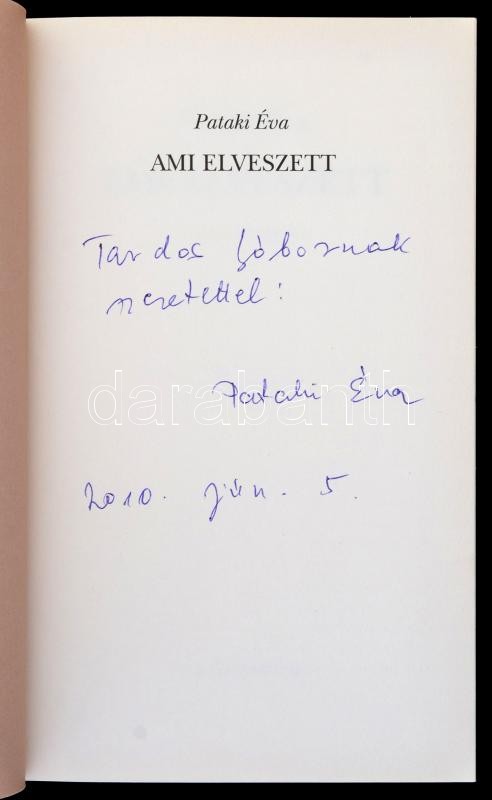 Pataki Éva
AMI ELVESZETT
Tardos Gábornak
szeretettel:
darabanth
Pataki Éva
2010. jún. 5.